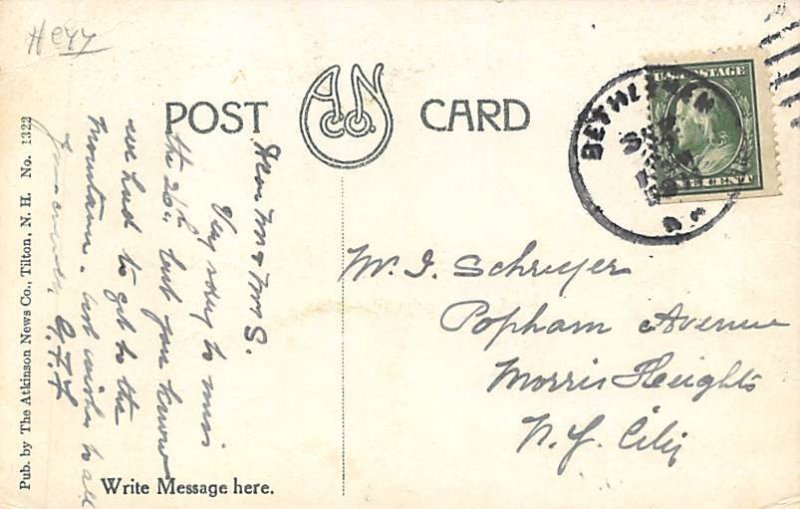 POST CARD
A N Co.
BETHLEHEM
U.S. POSTAGE
CENT
Dear Mr & Mrs S.
Very sorry to miss
the 26th but you know
we had to get to the
Mountains. best wishes to all
G. F. F.
Mr. I. Schruyer
Popham Avenue
Morris Heights
N. Y. City
Write Message here.
Pub. by The Atkinson News Co., Tilton, N. H. No. 1322